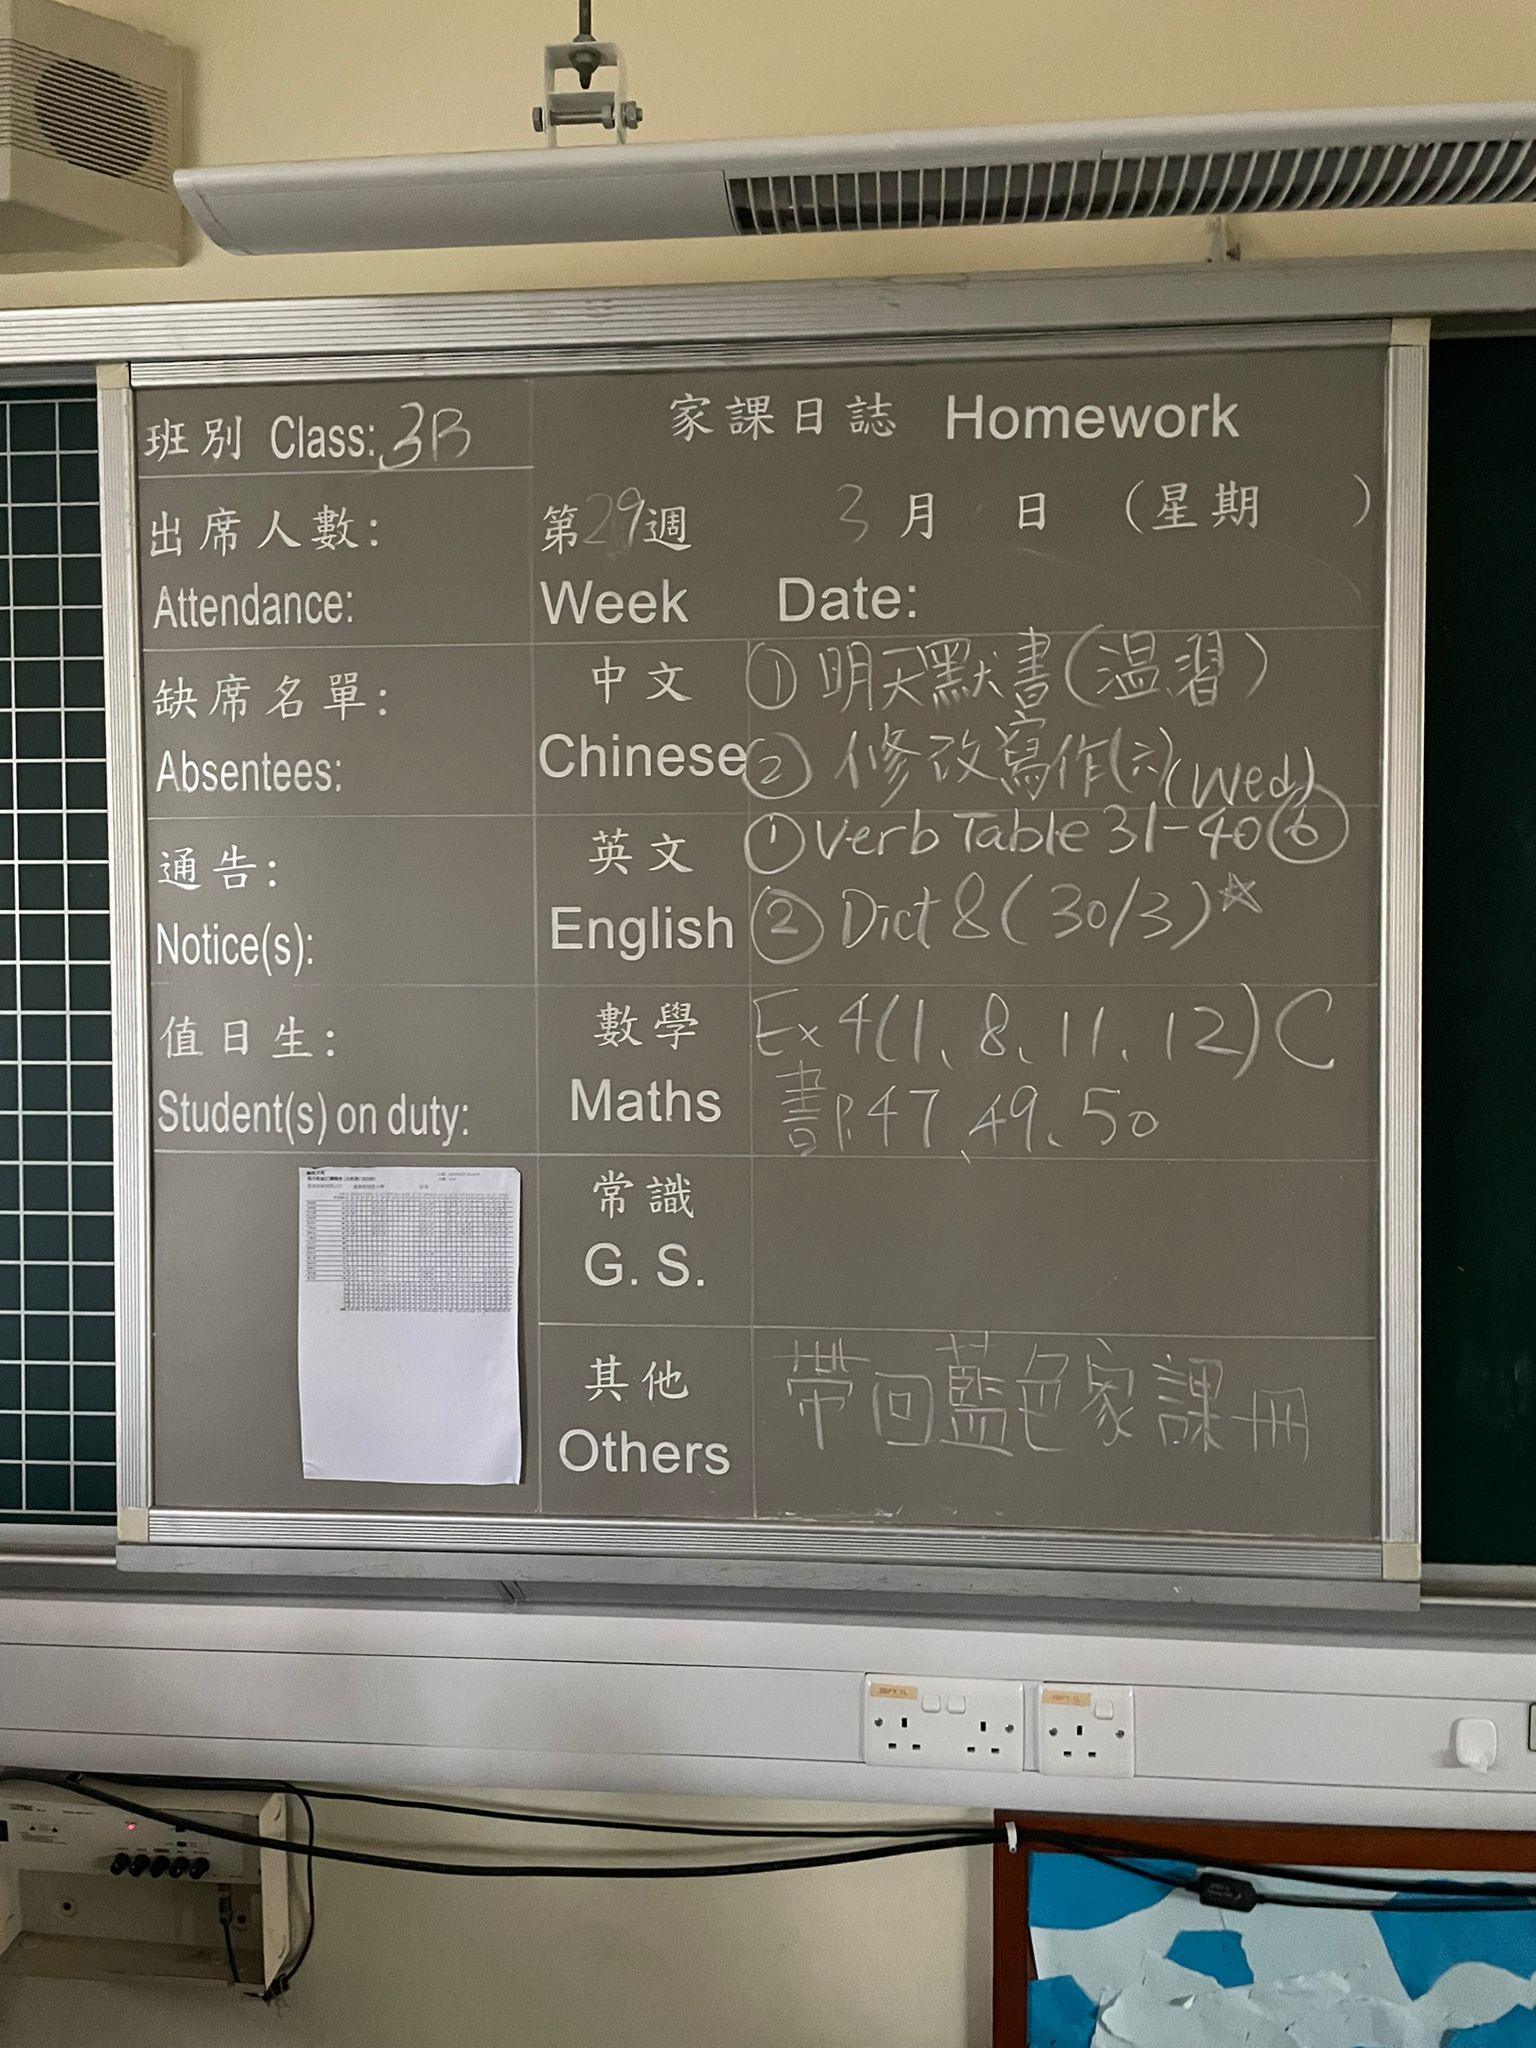 班別 Class: 3B
家課日誌 Homework
出席人數:
Attendance:
第29週 3月 日 (星期 )
Week Date:
缺席名單:
Absentees:
中文
Chinese
① 明天默書(温習)
② 修改寫作(六)(Wed)
通告:
Notice(s):
英文
English
① Verb Table 31-40 ⑥
② Dict 8 (30/3)☆
值日生:
Student(s) on duty:
數學
Maths
Ex 4(1、8、11、12)C
書P.47、49、50
常識
G. S.
其他
Others
帶回藍色家課冊